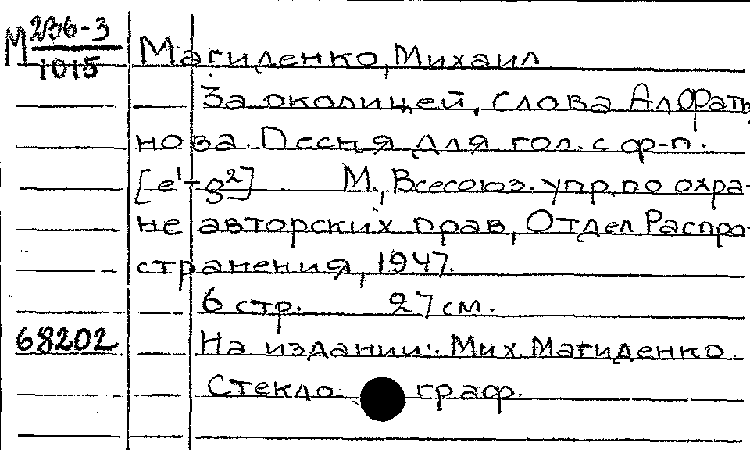 М 236-3
1015
Магиденко, Михаил
За околицей, слова Ал Фать
нова. Песня для гол. с ф-п.
[e¹-g²] М., Всесоюз. упр. по охра-
не авторских прав, Отдел Распро-
странения, 1947.
6 стр. 27 см.
68202 На издании: Мих. Магиденко.
Стекло граф.